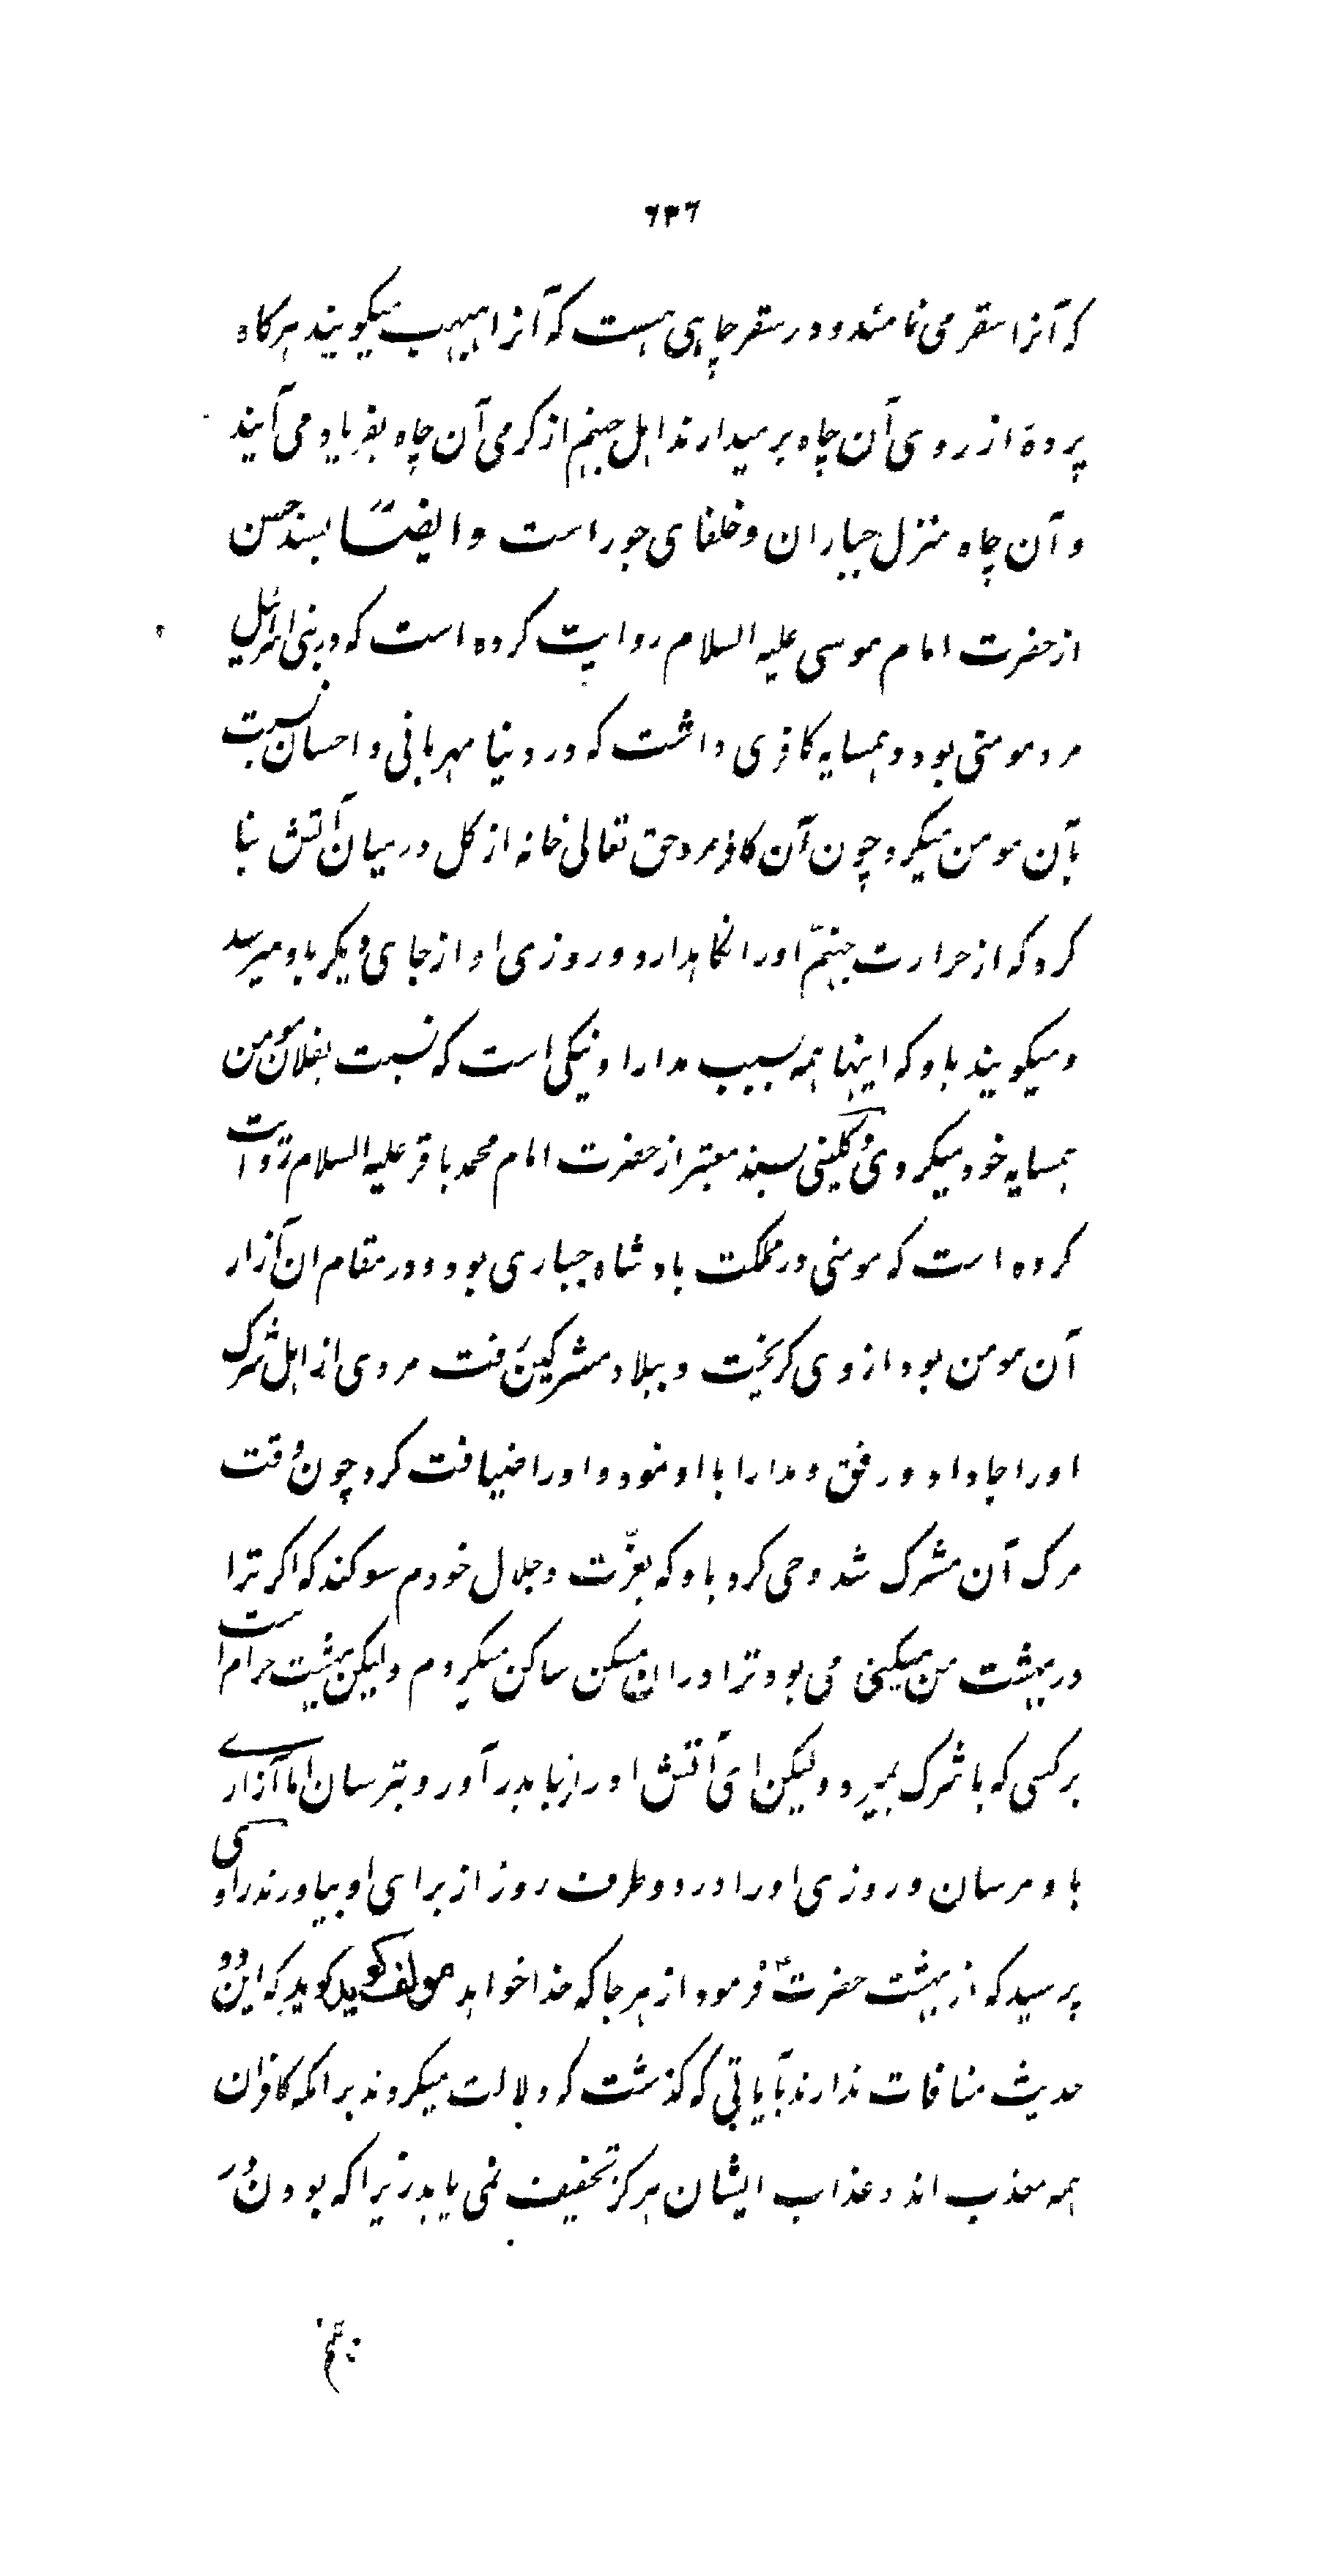 ٦٣٦
که آنرا سقر می نامند و در سقر چاهی هست که آنرا هبهب میکویند هرکاه
پرده از روی آن چاه بر میدارند اهل جهنم از کرمی آن چاه بفریاد می آیند
و آن چاه منزل جباران و خلفای جور است و ایضًا بسند حسن
از حضرت امام موسی علیه السلام روایت کرده است که در بنی اسرائیل
مرد مومنی بود و همسایه کافری داشت که در دنیا مهربانی و احسان نسبت
بآن مومن میکرد چون آن کافر مرد حق تعالی خانه از کل در میان آتش بنا
کرد که از حرارت جهنّم اورا نکاهدارد و روزی او از جای دیکر باو میرسد
و میکویند باو که اینها همه بسبب مدارا و نیکی است که نسبت بفلان مومن
همسایه خود میکردی کلینی بسند معتبر از حضرت امام محمد باقر علیه السلام روایت
کرده است که مومنی در مملکت بادشاه جباری بود و در مقام ان آزار
آن مومن بود از وی کریخت و ببلاد مشرکین رفت مردی از اهل شرک
اورا جا داد و رفق و مدارا با او نمود و اورا ضیافت کرد چون وقت
مرک آن مشرک شد وحی کرد باو که بعزّت و جلال خودم سوکند که اکر ترا
در بهشت من میکنی می بود ترا در ان مسکن ساکن میکردم ولیکن بهشت حرام است
بر کسی که با شرک بمیرد ولیکن ای آتش اورا از جا بدر آور و بترسان اما آزاری
باو مرسان و روزی اورا در دو طرف روز از برای او بیاورند راوی
پرسید که از بهشت حضرت فرمود از هر جا که خدا خواهد مولف کوید که این دو
حدیث منافات ندارند بآیاتی که کذشت که دلالت میکردند بر انکه کافران
همه معذب اند و عذاب ایشان هرکز تخفیف نمی یابد زیرا که بودن در